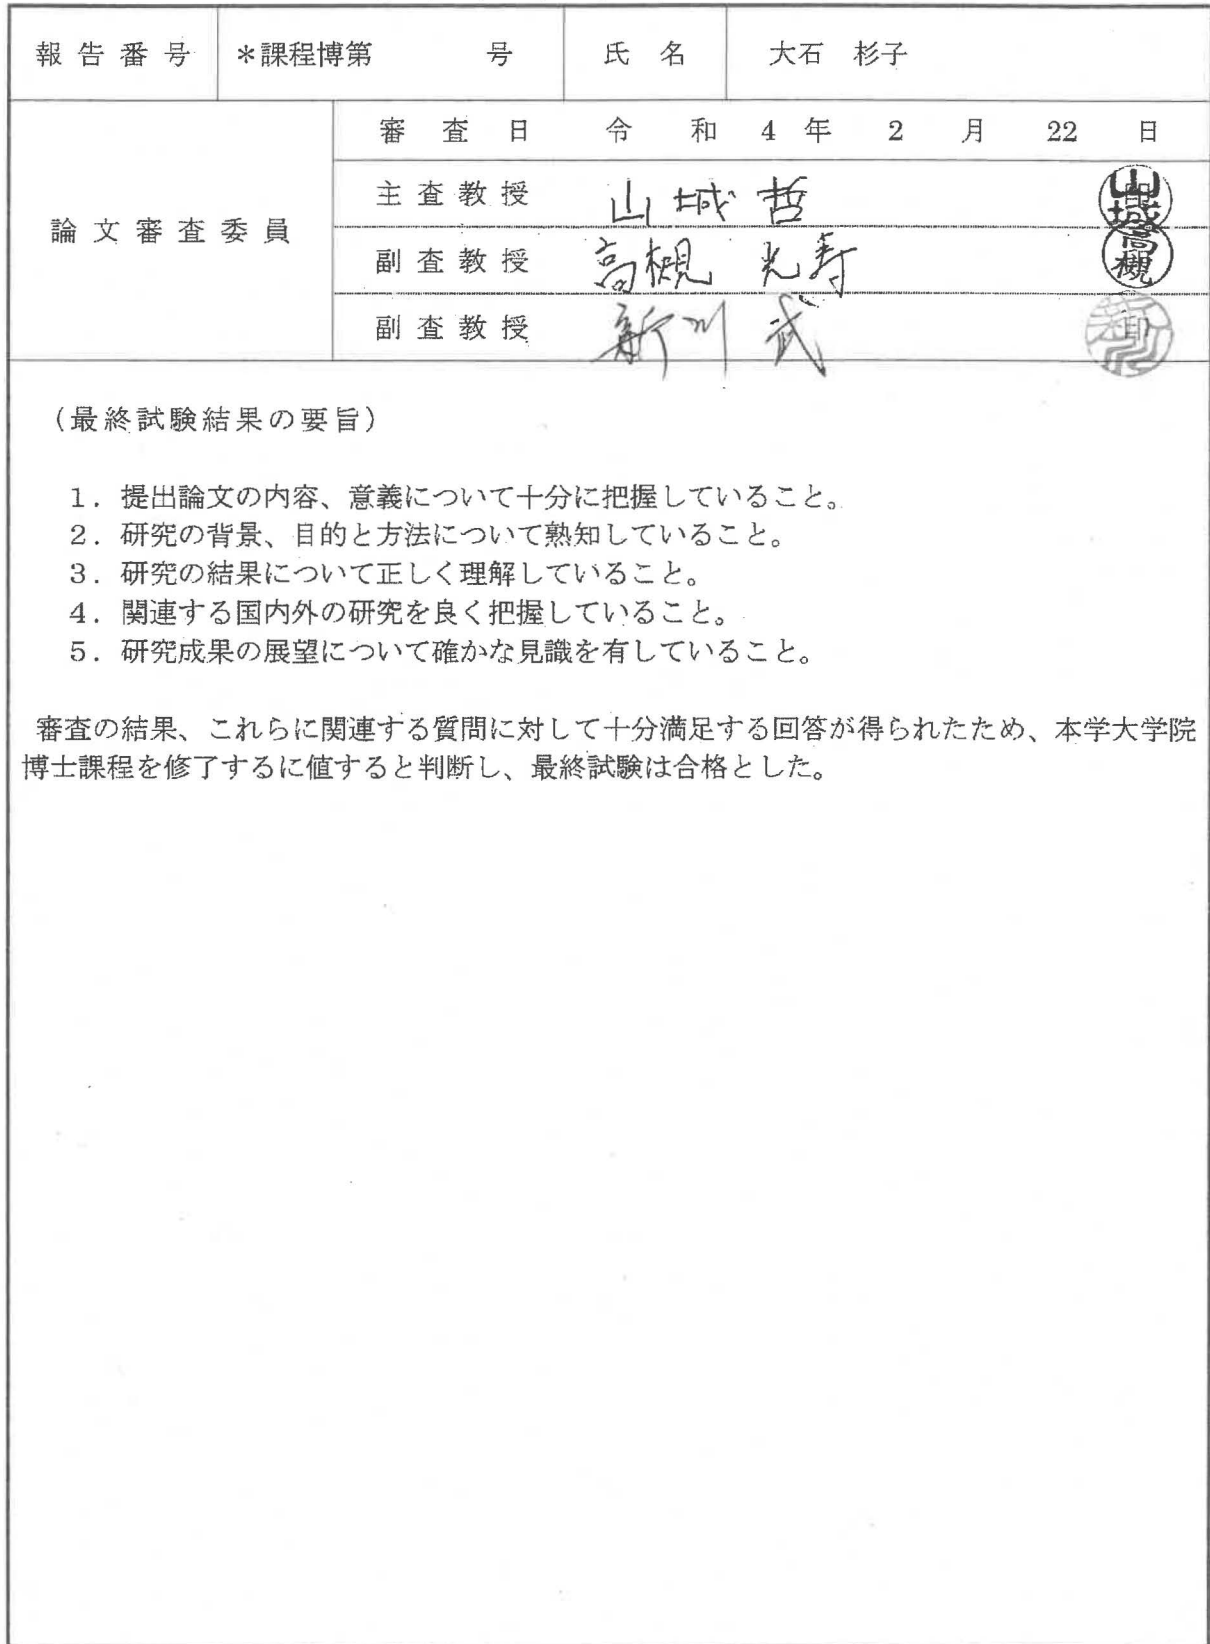 報告番号 ＊課程博第 号 氏名 大石 杉子
審査日 令和 4 年 2 月 22 日
論文審査委員
主査教授 山城 哲 山城 印
副査教授 高槻 光寿 高槻
副査教授 新川 武 印
（最終試験結果の要旨）
１．提出論文の内容、意義について十分に把握していること。
２．研究の背景、目的と方法について熟知していること。
３．研究の結果について正しく理解していること。
４．関連する国内外の研究を良く把握していること。
５．研究成果の展望について確かな見識を有していること。
審査の結果、これらに関連する質問に対して十分満足する回答が得られたため、本学大学院
博士課程を修了するに値すると判断し、最終試験は合格とした。